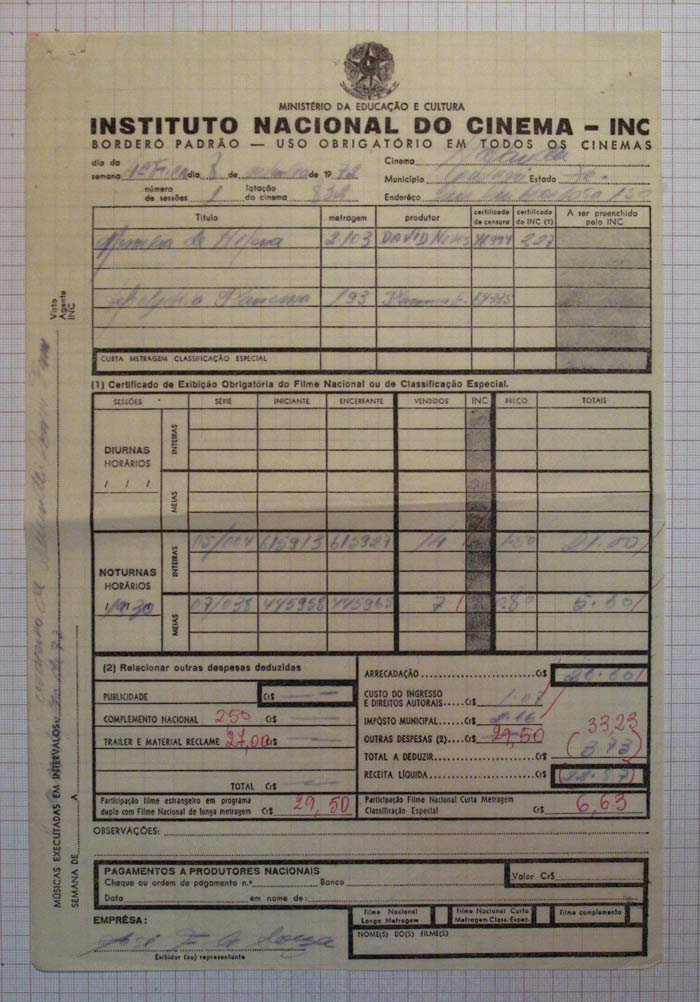 MINISTÉRIO DA EDUCAÇÃO E CULTURA
INSTITUTO NACIONAL DO CINEMA – INC
BORDERÔ PADRÃO — USO OBRIGATÓRIO EM TODOS OS CINEMAS
dia da semana 4ª Feira dia 8 de de 1972 Cinema
Município Estado
número de sessões 1 lotação do cinema 832 Endereço
Título metragem produtor certificado de censura certificado do INC (1) A ser preenchido pelo INC
Memória de Helena 2.103 DAVID Neves 227
193
CURTA METRAGEM CLASSIFICAÇÃO ESPECIAL
(1) Certificado de Exibição Obrigatória do Filme Nacional ou de Classificação Especial.
SESSÕES SÉRIE INICIANTE ENCERRANTE VENDIDOS INC PREÇO TOTAIS
DIURNAS
HORÁRIOS
INTEIRAS
MEIAS
NOTURNAS
HORÁRIOS
19,30
INTEIRAS 05/004 615913 615927 14 1.50 21.00
MEIAS 07/038 445958 445965 7 0.80 5.60
(2) Relacionar outras despesas deduzidas
PUBLICIDADE Cr$
COMPLEMENTO NACIONAL 2,50 Cr$
TRAILER E MATERIAL RECLAME 27,00 Cr$
TOTAL Cr$
Participação filme estrangeiro em programa duplo com Filme Nacional de longa metragem Cr$ 29,50
ARRECADAÇÃO Cr$ 26.60
CUSTO DO INGRESSO E DIREITOS AUTORAIS Cr$ 1.07
IMPÔSTO MUNICIPAL Cr$ 2.66
OUTRAS DESPESAS (2) Cr$ 29,50 33,23
TOTAL A DEDUZIR Cr$ (3.73)
RECEITA LÍQUIDA Cr$ (22.87)
Participação Filme Nacional Curta Metragem Classificação Especial Cr$ 6,63
OBSERVAÇÕES:
PAGAMENTOS A PRODUTORES NACIONAIS
Cheque ou ordem de pagamento n.º Banco Valor Cr$
Data em nome de:
EMPRÊSA:
Filme Nacional Longa Metragem Filme Nacional Curta Metragem Class. Espec. Filme complemento
NOME(S) DO(S) FILME(S)
Exibidor (ou) representante
Visto Agente INC
MÚSICAS EXECUTADAS EM INTERVALOS
SEMANA DE A